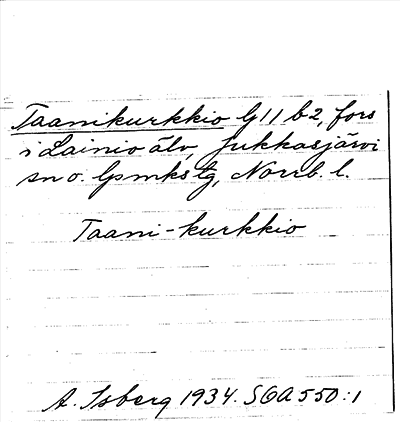 Taanikurkkio G11 b2, fors
i Lainio älv, Jukkasjärvi
sn o. lpmkstg, Norrb. l.
Taani-kurkkio
A. Isberg 1934. SOA 550:1